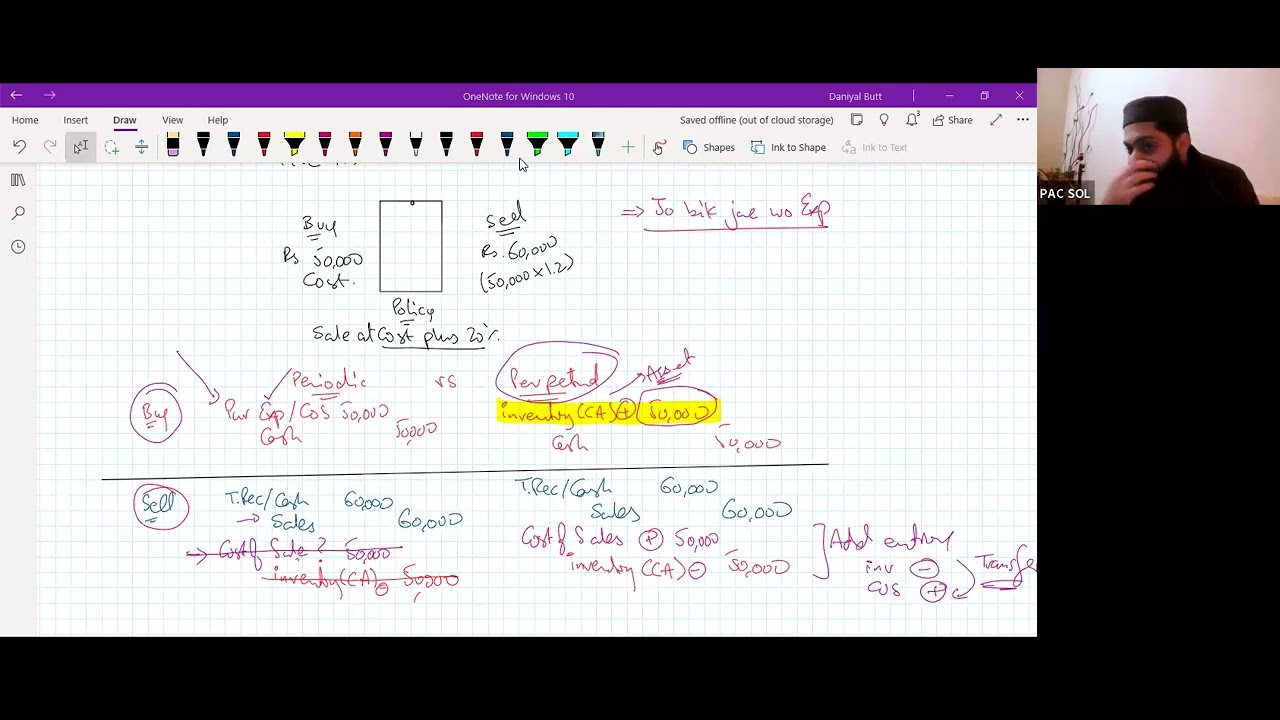 OneNote for Windows 10
Daniyal Butt
Home Insert Draw View Help
Saved offline (out of cloud storage)
3
Share
Shapes
Ink to Shape
Ink to Text
PAC SOL
Buy
Rs 50,000
Cost.
Sell
Rs. 60,000
(50,000 x 1.2)
⇒ Jo bik jae wo Exp
Policy
Sale at Cost plus 20%.
Periodic vs Perpetual → Asset
Buy
Pur Exp/COS 50,000
Cash 50,000
inventory (CA) + 50,000
Cash 50,000
Sell
T.Rec/Cash 60,000
→ Sales 60,000
→ Cost of Sale ? 50,000
inventory (CA) - 50,000
T.Rec/Cash 60,000
Sales 60,000
Cost of Sales + 50,000
inventory (CA) - 50,000
Add entry
inv -
COS +
Transfe